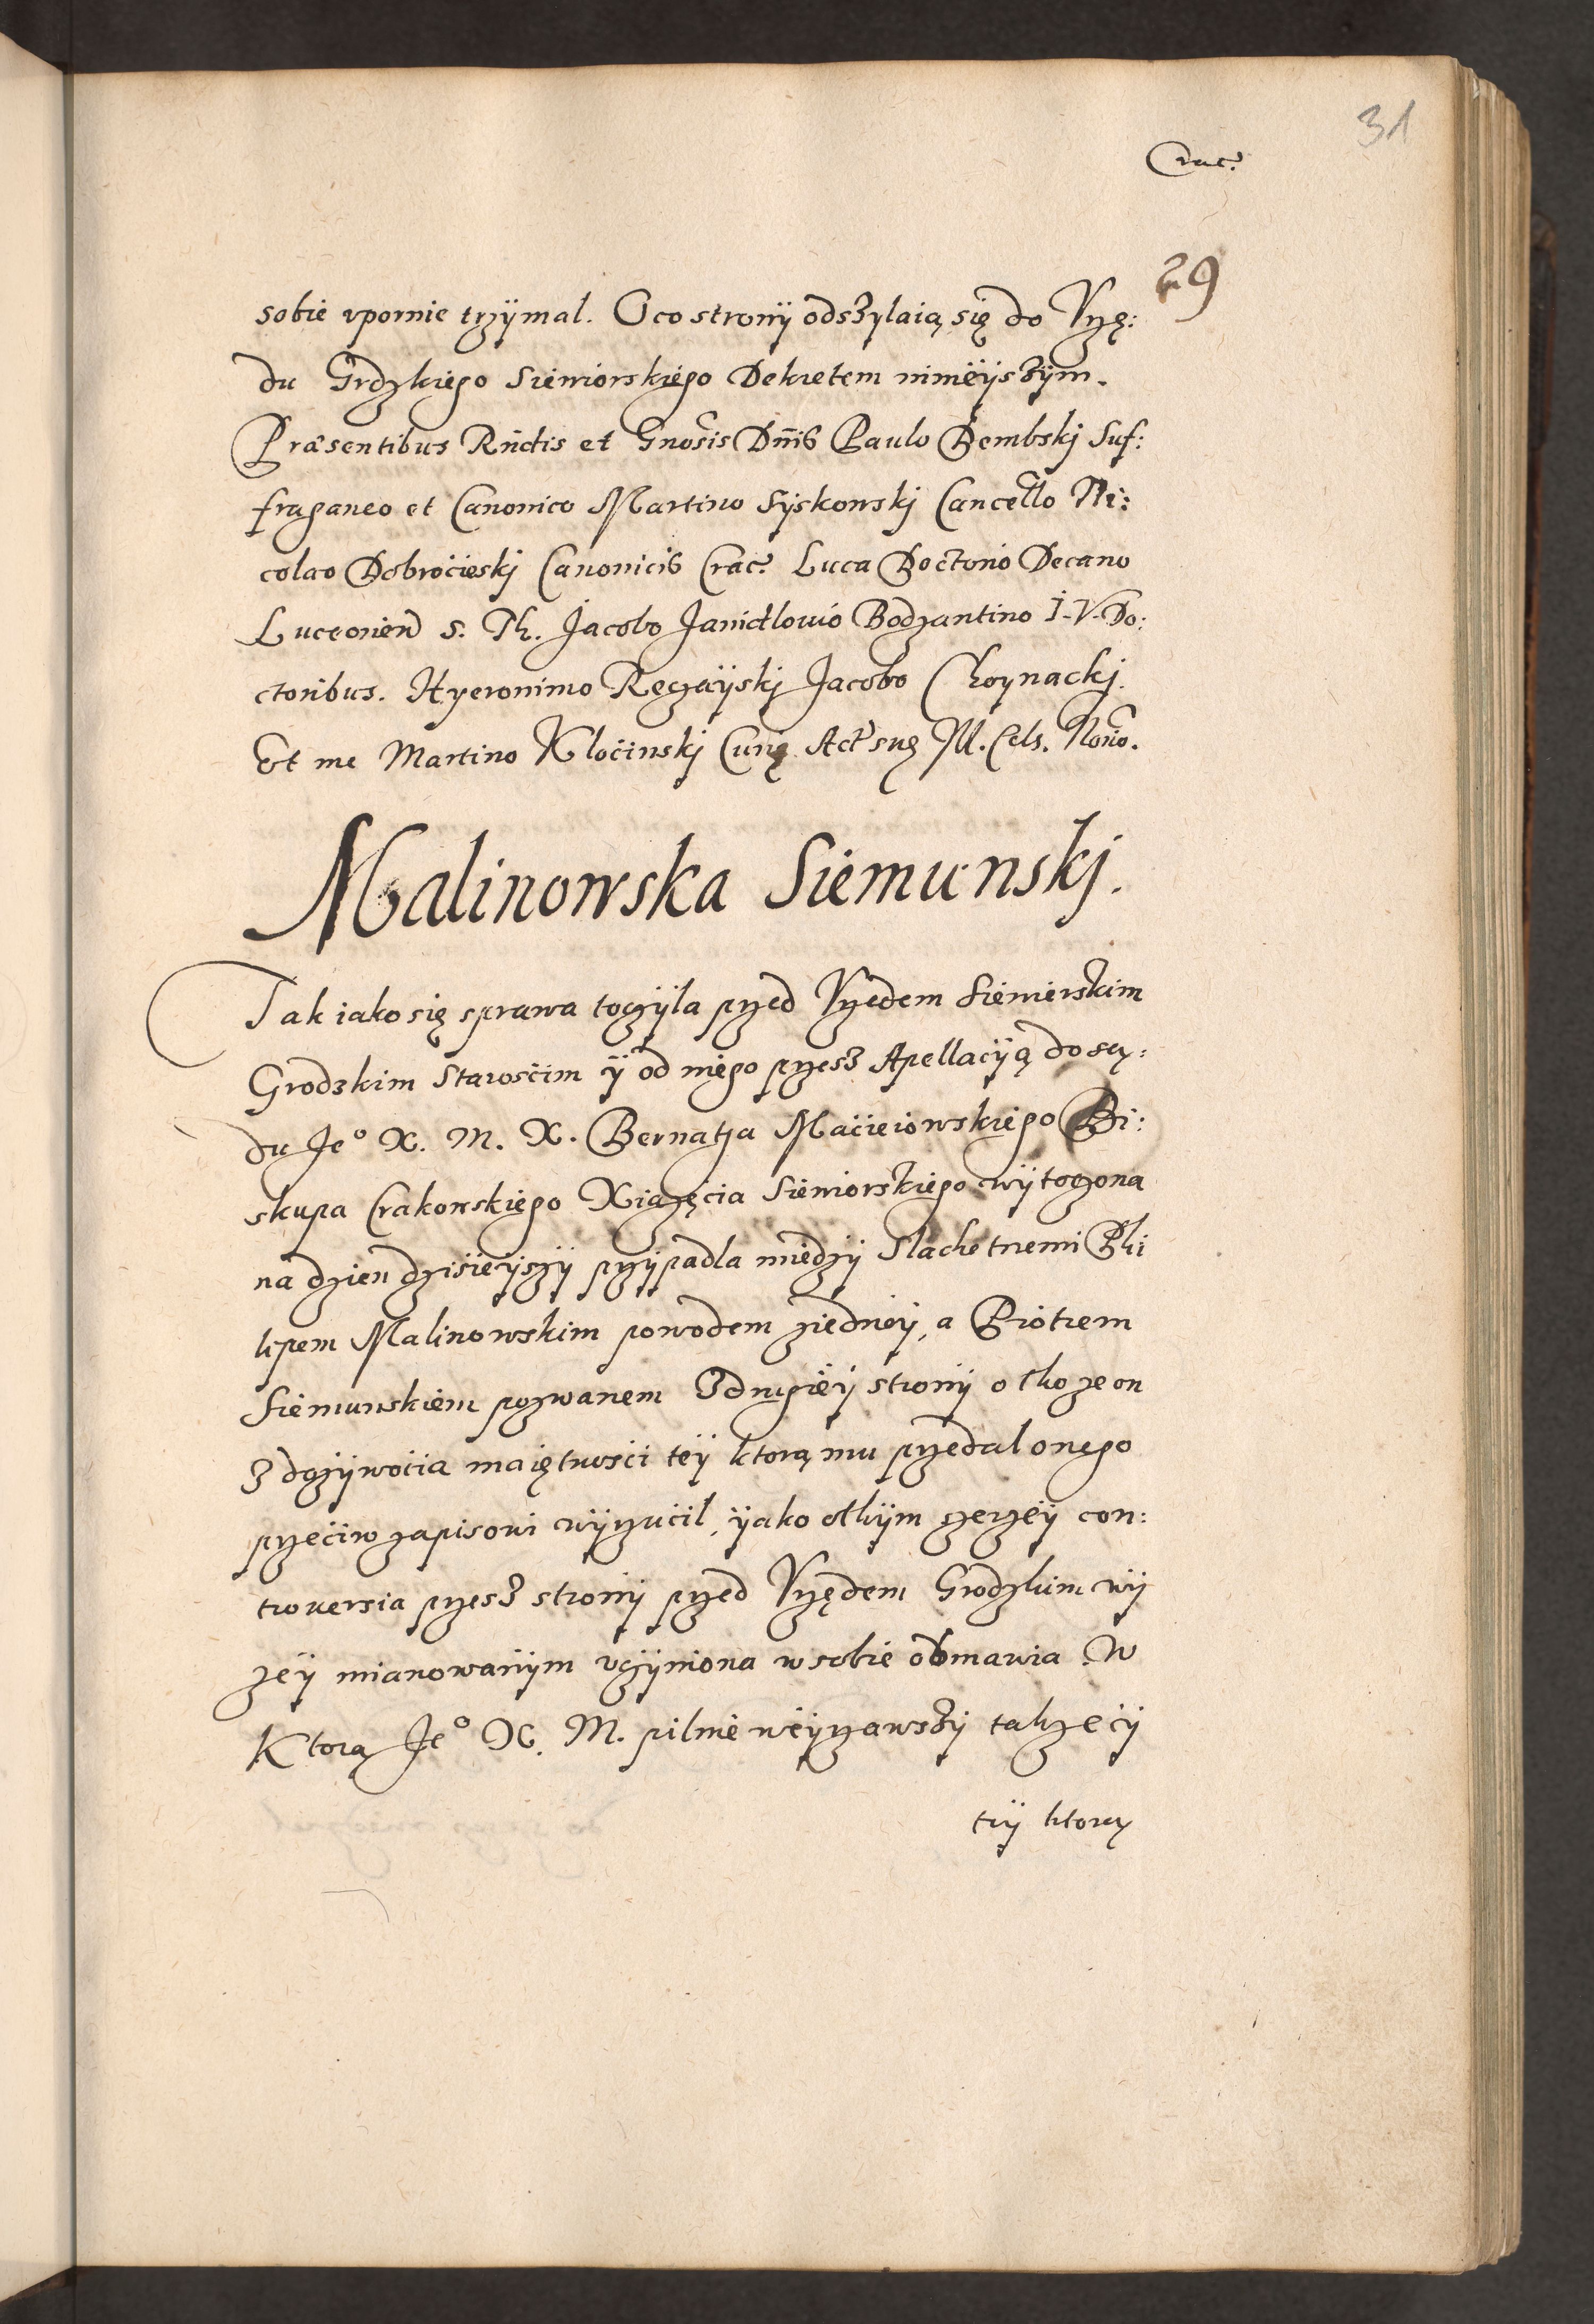 31
Crac.
29
sobie vpornie trzÿmal. O co stronÿ odsZylaią się do Vrzę:
du Grdzkiego Siewiorskiego Dekretem ninieÿsZÿm.
Præsentibus Rndis et Gnosis Dnis Paulo Dembskj Suf:
fraganeo et Canonico Martino Syskowskj Cancello Ni:
colao Dobrocieskj Canonicis Crac. Luca Doctorio Decano
Luceorien s. Th. Jacobo Janidlouio Bodzantino I. V. Do:
ctoribus. Hyeronimo Regaÿskj Jacobo Choynackj.
Et me Martino Klocinskj Curę Act suę Ill. Cels. Norio.
Malinowska Siemunskj.
Tak iako się sprawa toczÿla przed Vrzedem Siewierskim
Grodzkim Starosćim ÿ od niego przesZ Apellacÿą do są:
du Je° X. M. X. Bernatha Maćieiowskiego Bi:
skupa Crakowskiego Xiązęcia Siewiorskiego wÿtoczona
na dzien dzisieÿszÿ przÿpadla miedzÿ Slachetnemi Phi
lipem Malinowskim powodem ziedneÿ, a Piotrem
Siemunskiem pozwanem Zdrugieÿ stronÿ o tho ze on
Z dozÿwoćia maiętnosći teÿ ktorą mu przedal onego
przećiw zapisowi wÿrzućil, ÿako othÿm szerzeÿ con:
trouersia przesZ stronÿ przed Vrzędem Grodzkim wÿ
zeÿ mianowanÿm vczÿniona w sobie obmawia. W
Ktorą Je° X. M. pilnie weÿrzawsZÿ takze cÿ
tÿ ktorą